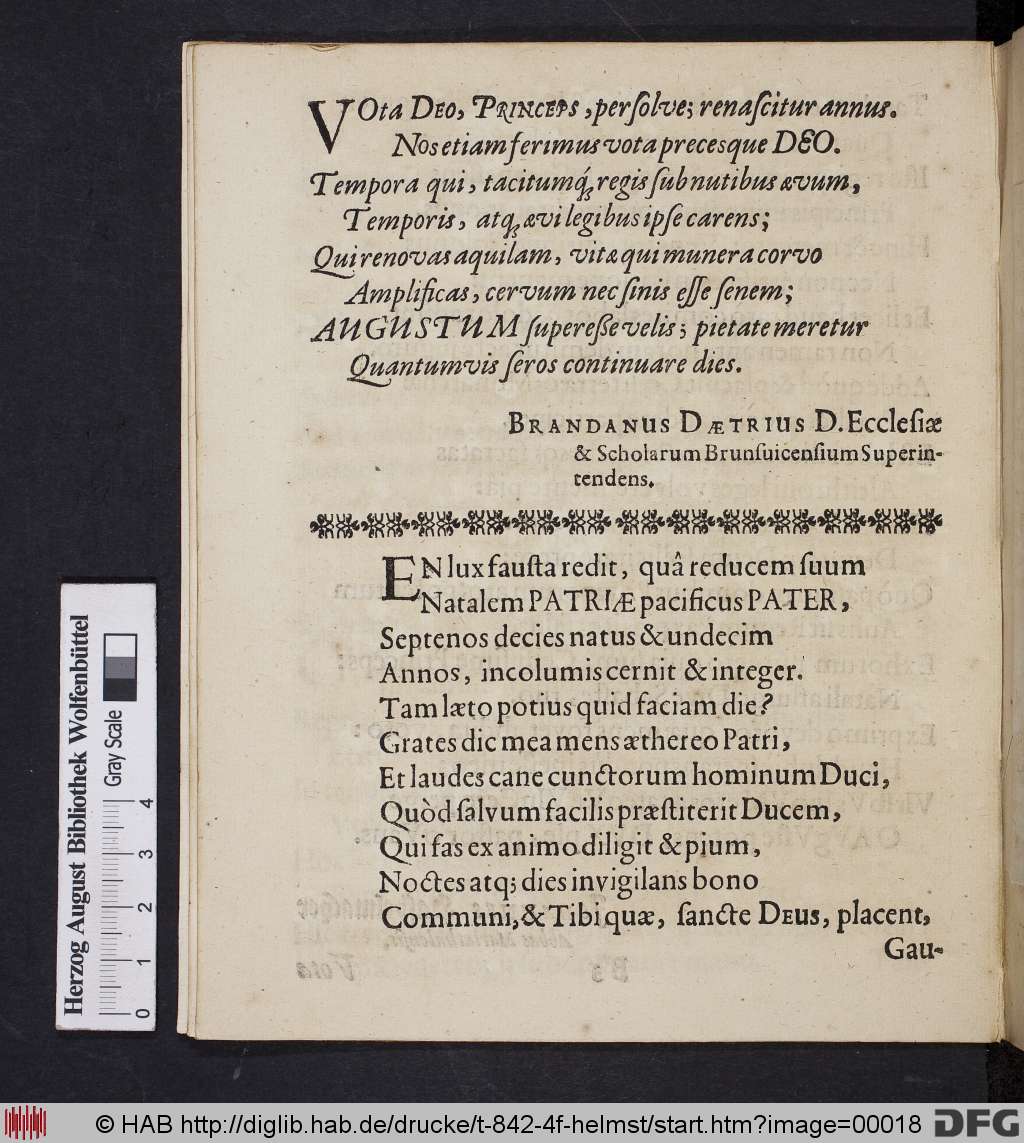 VOta DEO, PRINCEPS, persolve; renascitur annus.
Nos etiam ferimus vota precesque DEO.
Tempora qui, tacitumq́; regis sub nutibus ævum,
Temporis, atq; ævi legibus ipse carens;
Qui renovas aquilam, vitæ qui munera corvo
Amplificas, cervum nec sinis esse senem;
AUGUSTUM superesse velis; pietate meretur
Quantumvis seros continuare dies.
BRANDANUS DÆTRIUS D. Ecclesiæ
& Scholarum Brunsuicensium Superin-
tendens.
EN lux fausta redit, quâ reducem suum
Natalem PATRIÆ pacificus PATER,
Septenos decies natus & undecim
Annos, incolumis cernit & integer.
Tam læto potius quid faciam die?
Grates dic mea mens æthereo Patri,
Et laudes cane cunctorum hominum Duci,
Quòd salvum facilis præstiterit Ducem,
Qui fas ex animo diligit & pium,
Noctes atq; dies invigilans bono
Communi, & Tibi quæ, sancte DEUS, placent,
Gau-
Herzog August Bibliothek Wolfenbüttel
Gray Scale
0 1 2 3 4
© HAB http://diglib.hab.de/drucke/t-842-4f-helmst/start.htm?image=00018
DFG